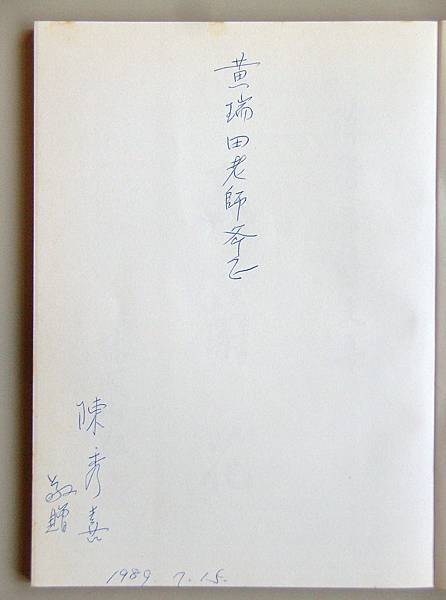 黄瑞田老師斧正
陳秀喜
敬贈
1989 7.15.